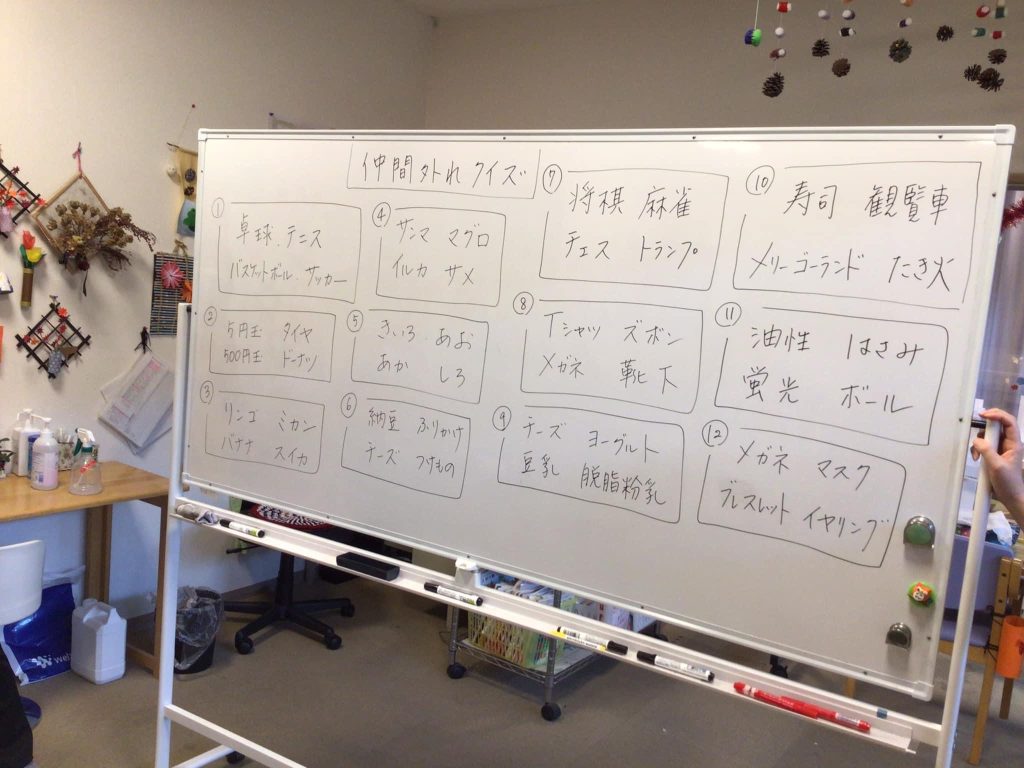 仲間外れクイズ
①
卓球、テニス
バスケットボール サッカー
②
5円玉 ダイヤ
500円玉 ドーナツ
③
リンゴ ミカン
バナナ スイカ
④
サンマ マグロ
イルカ サメ
⑤
きいろ あお
あか しろ
⑥
納豆 ふりかけ
チーズ つけもの
⑦
将棋 麻雀
チェス トランプ
⑧
Tシャツ ズボン
メガネ 靴下
⑨
チーズ ヨーグルト
豆乳 脱脂粉乳
⑩
寿司 観覧車
メリーゴーランド たき火
⑪
油性 はさみ
蛍光 ボール
⑫
メガネ マスク
ブレスレット イヤリング